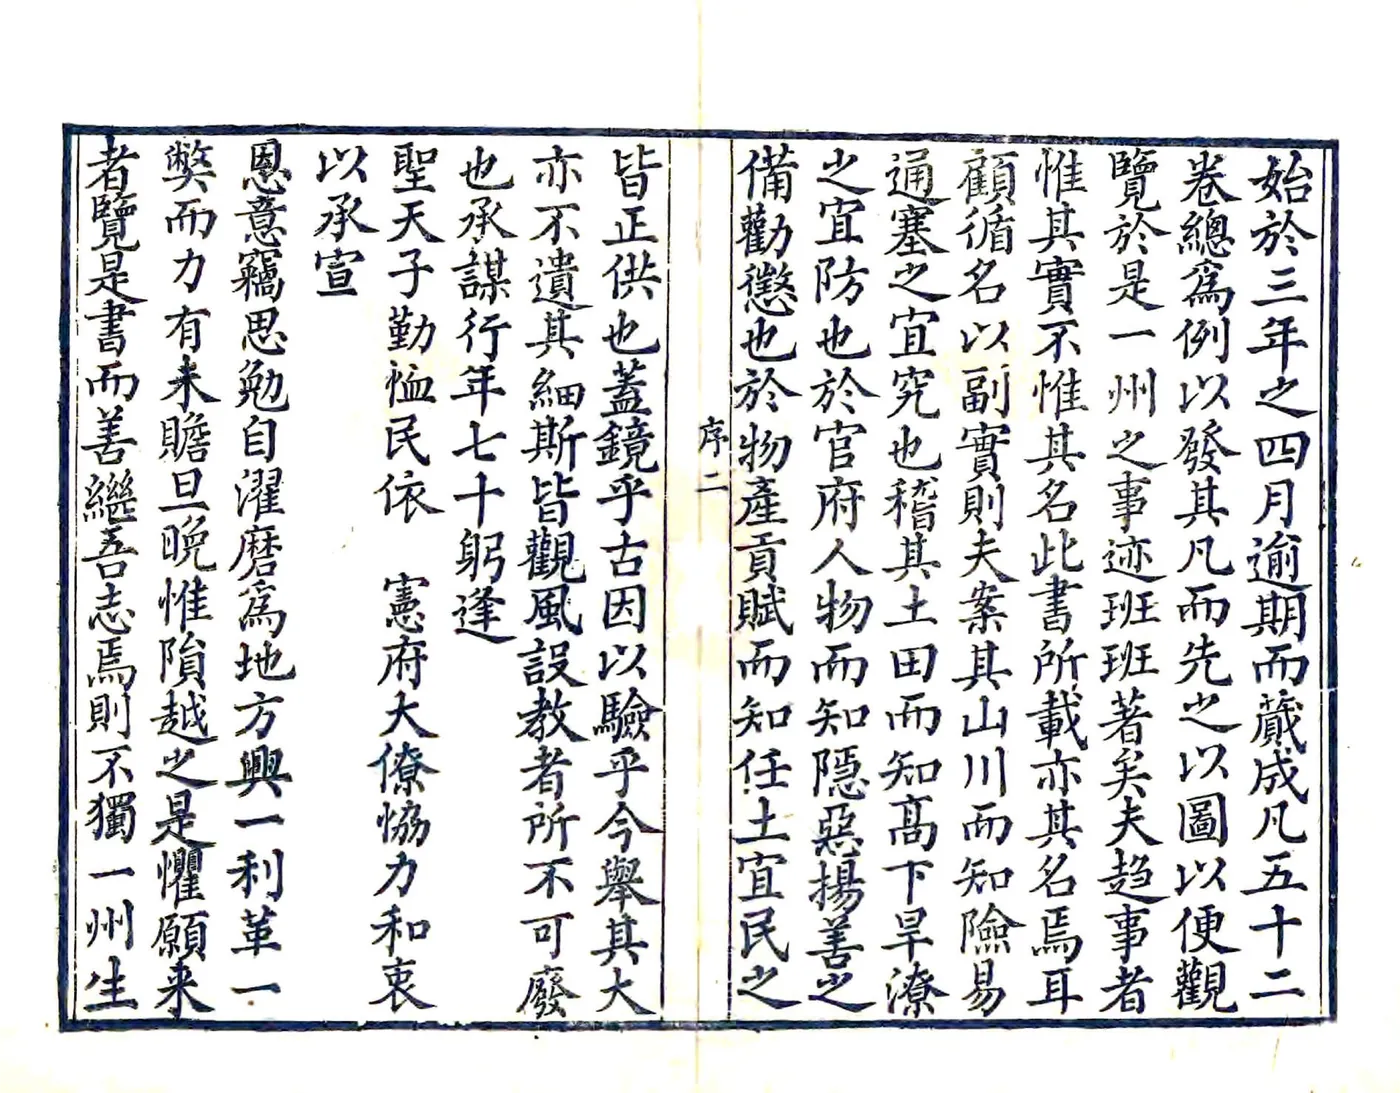 始於三年之四月逾期而蕆成凡五十二
卷總爲例以發其凡而先之以圖以便觀
覽於是一州之事迹班班著矣夫趋事者
惟其實不惟其名此書所載亦其名焉耳
顧循名以副實則夫案其山川而知險易
通塞之宜究也稽其土田而知高下旱潦
之宜防也於官府人物而知隱惡揚善之
備勸懲也於物產貢賦而知任土宜民之
序二
皆正供也蓋鏡乎古因以驗乎今舉其大
亦不遺其細斯皆觀風設教者所不可廢
也承謀行年七十躬逢
聖天子勤恤民依　憲府大僚協力和衷
以承宣
恩意竊思勉自濯磨爲地方興一利革一
獘而力有未贍旦晩惟隕越之是懼願来
者覽是書而善繼吾志焉則不獨一州生